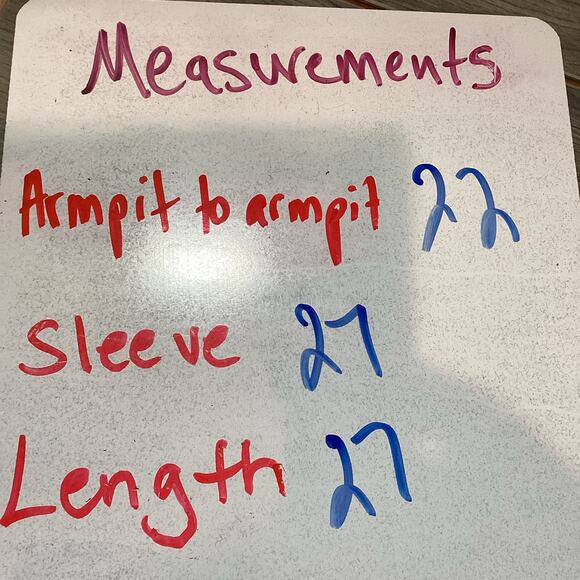 Measurements
Armpit to armpit 22
Sleeve 27
Length 27